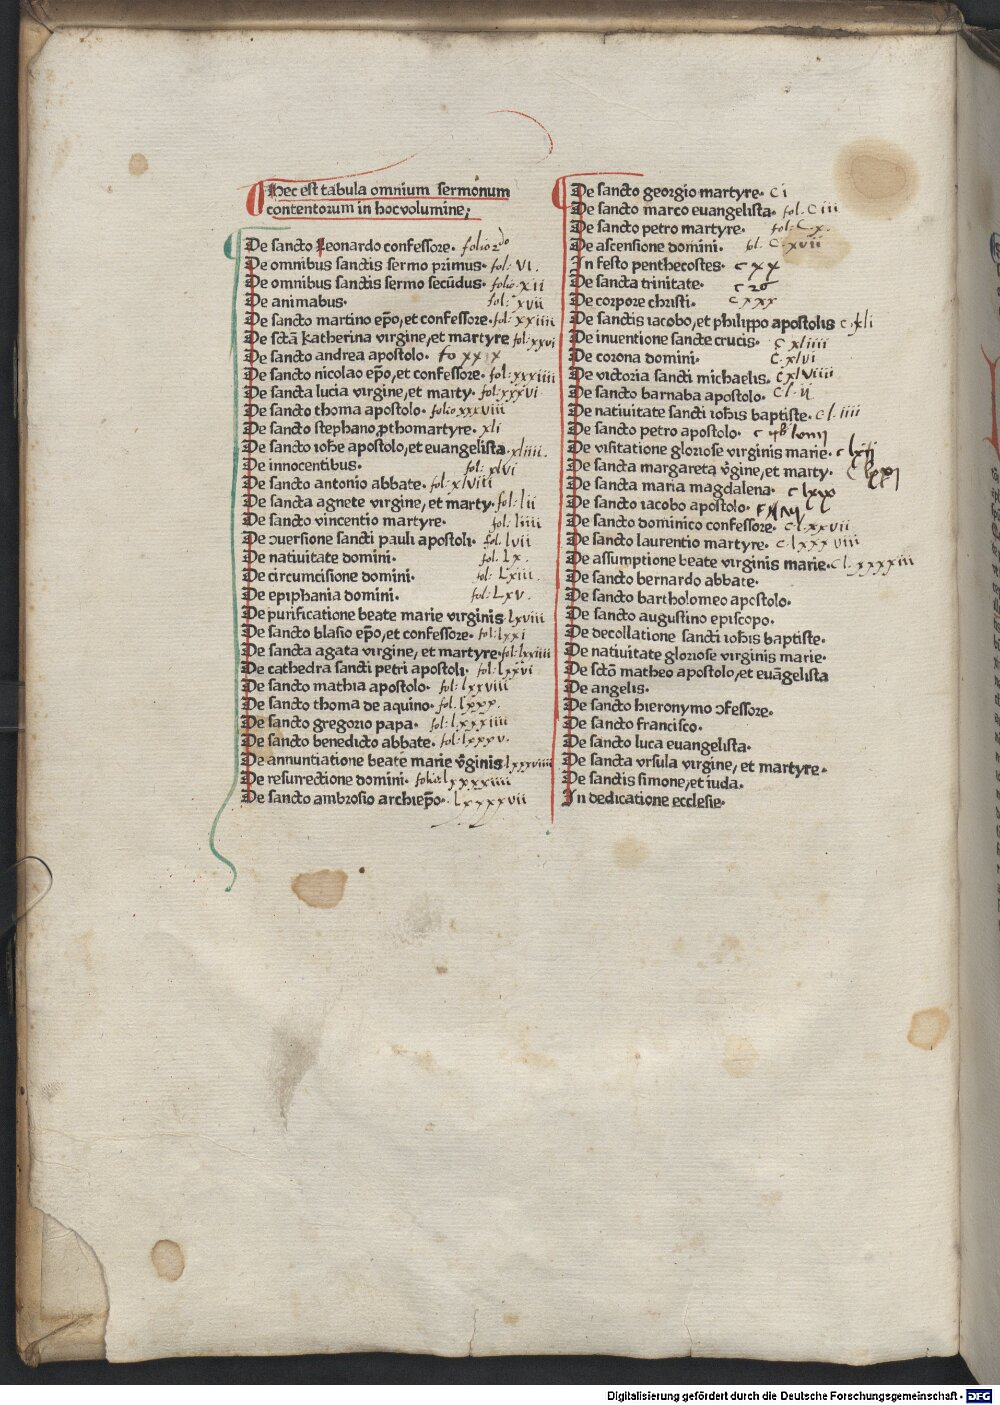 Hec est tabula omnium sermonum
contentorum in hoc volumine;
De sancto Leonardo confessore. folio 2do
De omnibus sanctis sermo primus. fol: VI.
De omnibus sanctis sermo secūdus. folio XII
De animabus. fol: xvii
De sancto martino ep̄o, et confessore. fol: xxiiii
De sctā katherina virgine, et martyre fol: xxvi
De sancto andrea apostolo. fo xxix
De sancto nicolao ep̄o, et confessore. fol: xxxiiii
De sancta lucia virgine, et marty. fol: xxxvi
De sancto thoma apostolo. folio xxxviii
De sancto stephano ꝓthomartyre. xli
De sancto iohē apostolo, et euangelista. xliiii.
De innocentibus. fol: xlvi
De sancto antonio abbate. fol: xlviii
De sancta agnete virgine, et marty. fol: lii
De sancto vincentio martyre. fol: liiii
De ꝯuersione sancti pauli apostoli. fol. lvii
De natiuitate domini. fol: Lx.
De circumcisione domini. fol: Lxiii.
De epiphania domini. fol: Lxv.
De purificatione beate marie virginis lxviii
De sancto blasio ep̄o, et confessore. fol: lxxi
De sancta agata virgine, et martyre. fol: lxxiiii
De cathedra sancti petri apostoli. fol: lxxvi
De sancto mathia apostolo. fol: lxxviii
De sancto thoma de aquino. fol: lxxx.
De sancto gregorio papa. fol: lxxxiiii
De sancto benedicto abbate. fol: lxxxv.
De annuntiatione beate marie v̄ginis lxxxviii
De resurrectione domini. folio: lxxxxiiii
De sancto ambrosio archiep̄o. lxxxxvii
De sancto georgio martyre. C i
De sancto marco euangelista. fol. C iii
De sancto petro martyre. fol: C. x.
De ascensione domini. fol. C. xvii
In festo penthecostes. c xx
De sancta trinitate.
De corpore christi. c xxx
De sanctis iacobo, et philippo apostolis c. xli
De inuentione sancte crucis. c xliiii
De corona domini. C. xlvi
De victoria sancti michaelis. c xlviiii
De sancto barnaba apostolo. C l. ii
De natiuitate sancti ioh̄is baptiste. c l. iiii
De sancto petro apostolo.
De visitatione gloriose virginis marie.
De sancta margareta v̄gine, et marty.
De sancta maria magdalena. c lxx
De sancto iacobo apostolo.
De sancto dominico confessore. c l. xxvii
De sancto laurentio martyre. c. lxxxviii
De assumptione beate virginis marie. C l. xxxxiii
De sancto bernardo abbate.
De sancto bartholomeo apostolo.
De sancto augustino episcopo.
De decollatione sancti ioh̄is baptiste.
De natiuitate gloriose virginis marie.
De sctō matheo apostolo, et euāgelista
De angelis.
De sancto hieronymo ꝯfessore.
De sancto francisco.
De sancto luca euangelista.
De sancta vrsula virgine, et martyre.
De sanctis simone, et iuda.
In dedicatione ecclesie.
Digitalisierung gefördert durch die Deutsche Forschungsgemeinschaft - DFG